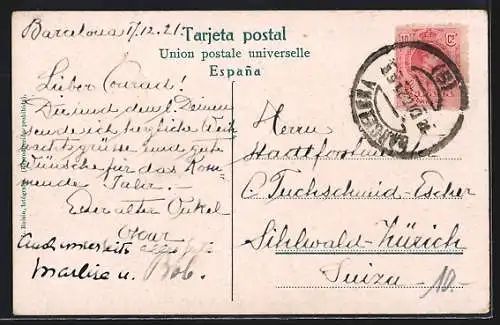 Barcelona 17.12.21.
Tarjeta postal
Union postale universelle
España
Lieber Conrad!
Dir und den Deinen
sende ich herzliche Weih
nachtsgrüsse und gute
Wünsche für das Kom
mende Jahr. –
Euer alter Onkel
Auch meinerseits
Marlise u. Bob.
Herrn
Stadtforstmeister
C. Tuchschmid-Escher
Sihlwald-Zürich
Suiza
10.-
BARCELONA